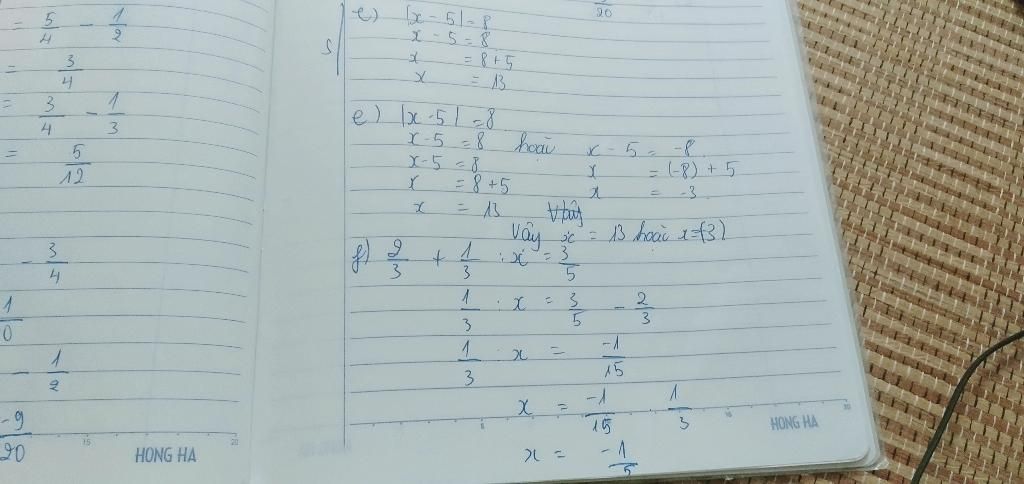 = 5/4 - 1/2
= 3/4
= 3/4 - 1/3
= 5/12
- 3/4
1/0
- 1/2
-9/20
15 20
HONG HA
20
S
e) |x - 5| = 8
x - 5 = 8
x = 8 + 5
x = 13
e) |x - 5| = 8
x - 5 = 8 hoặc x - 5 = -8
x - 5 = 8 x = (-8) + 5
x = 8 + 5 x = -3
x = 13
Vậy x = 13 hoặc x = (-3)
f) 2/3 + 1/3 : x = 3/5
1/3 : x = 3/5 - 2/3
1/3 : x = -1/15
x = -1/15 1/3
x = -1/5
HONG HA